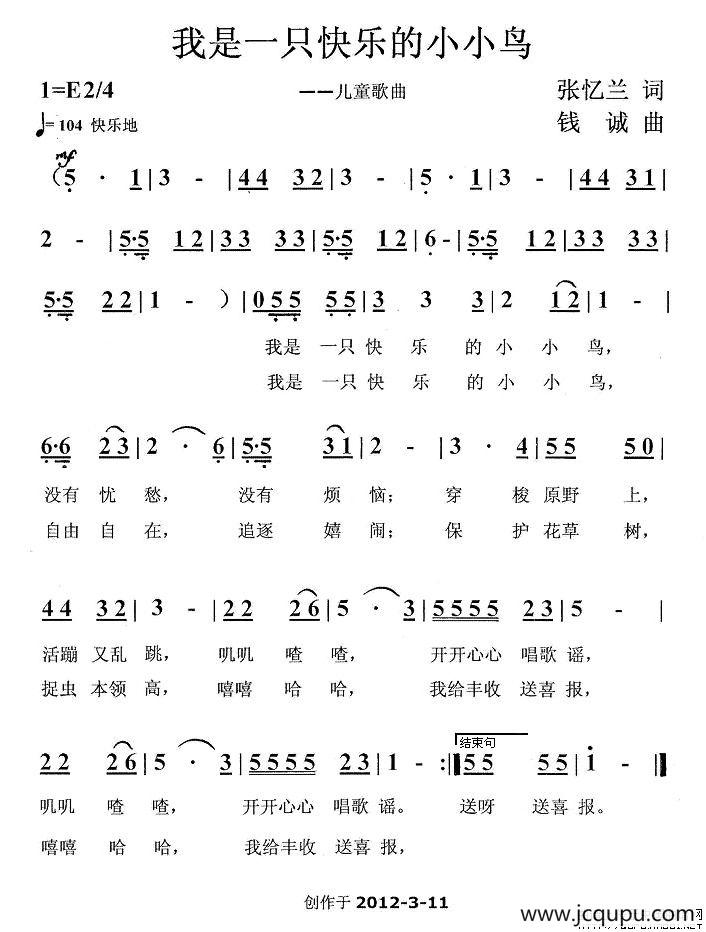 我是一只快乐的小小鸟
1=E2/4 ——儿童歌曲 张忆兰 词
♩= 104 快乐地 钱 诚 曲
mf
(5 · 1|3 - |44 32|3 - |5 · 1|3 - |44 33|
2 - |5·5 12|33 33|5·5 12|6 - |5·5 12|33 33|
5·5 22|1 - )|055 55|3 3 3|2 12|
我是 一只 快 乐 的 小 小 鸟,
我是 一只 快 乐 的 小 小 鸟,
6·6 23|2 · 6|5·5 31|2 - |3 · 4|55 50|
没有 忧 愁, 没有 烦 恼; 穿 梭 原野 上,
自由 自 在, 追逐 嬉 闹; 保 护 花草 树,
44 32|3 - |22 26|5 · 3|5555 23|5 - |
活蹦 又乱 跳, 叽叽 喳 喳, 开开心心 唱歌 谣,
捉虫 本领 高, 嘻嘻 哈 哈, 我给丰收 送喜 报,
结束句
22 26|5 · 3|5555 23|1 - :‖55 55|1 - ‖
叽叽 喳 喳, 开开心心 唱歌 谣。 送呀 送喜 报。
嘻嘻 哈 哈, 我给丰收 送喜 报,
创作于 2012-3-11
www.jcqupu.com